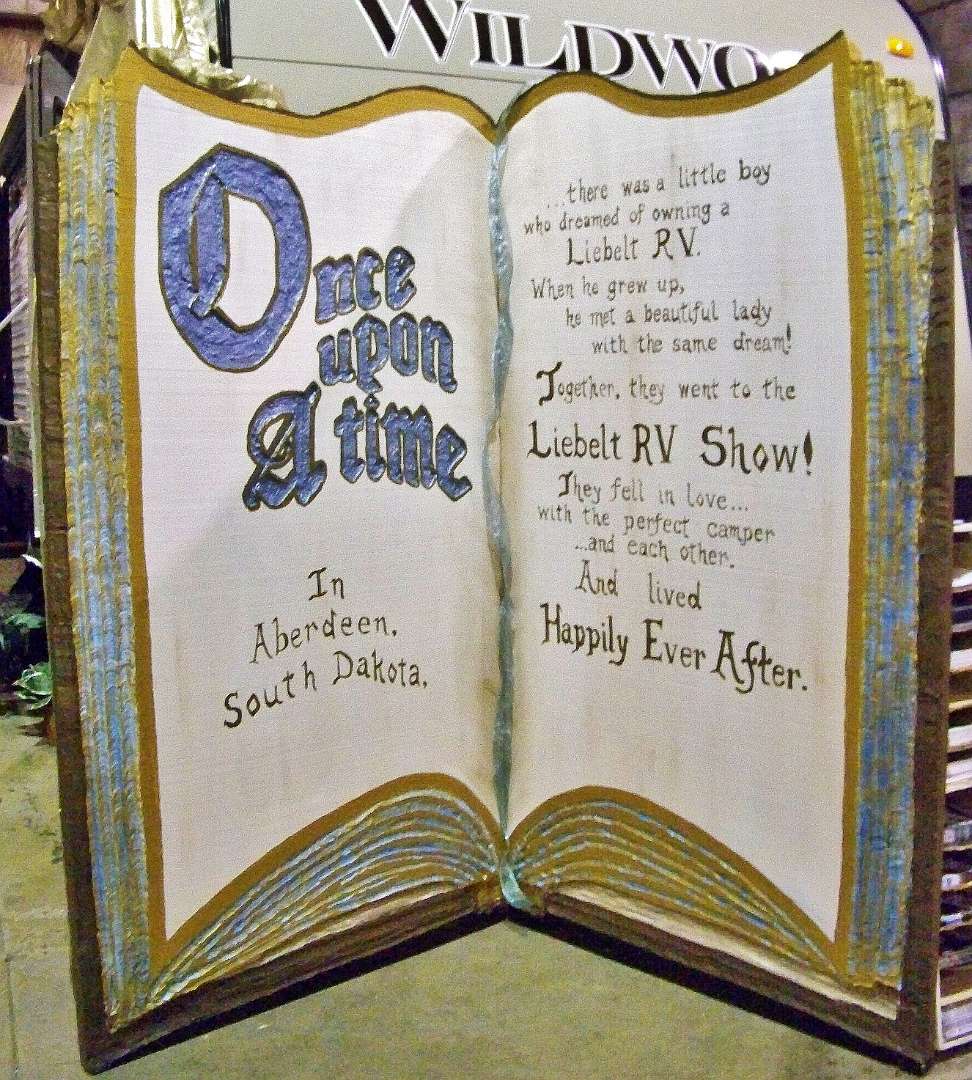 WILDWO
Once
upon
A time
In
Aberdeen,
South Dakota,
...there was a little boy
who dreamed of owning a
Liebelt RV.
When he grew up,
he met a beautiful lady
with the same dream!
Together, they went to the
Liebelt RV Show!
They fell in love...
with the perfect camper
...and each other.
And lived
Happily Ever After.